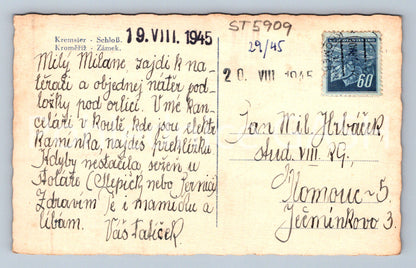 Kremsier - Schloß.
Kroměříž - Zámek.
19. VIII. 1945
ST5909
29/45
20. VIII 1945
60
Milý Milane, zajdi k na-
těrači a objednej nátěr pod-
ložky pod orlici. V mé kan-
celáři v koutě, kde jsou elektr.
kamínka, najdeš překližku.
Kdyby nestačila, seřeň u
stoláře
Zdravím Tě i maminku a
líbám.
Váš tatíček.
Jan Mil. Hrbáček
stud. VIII. RG.
Olomouc - 5.
Ječmínkova 3.